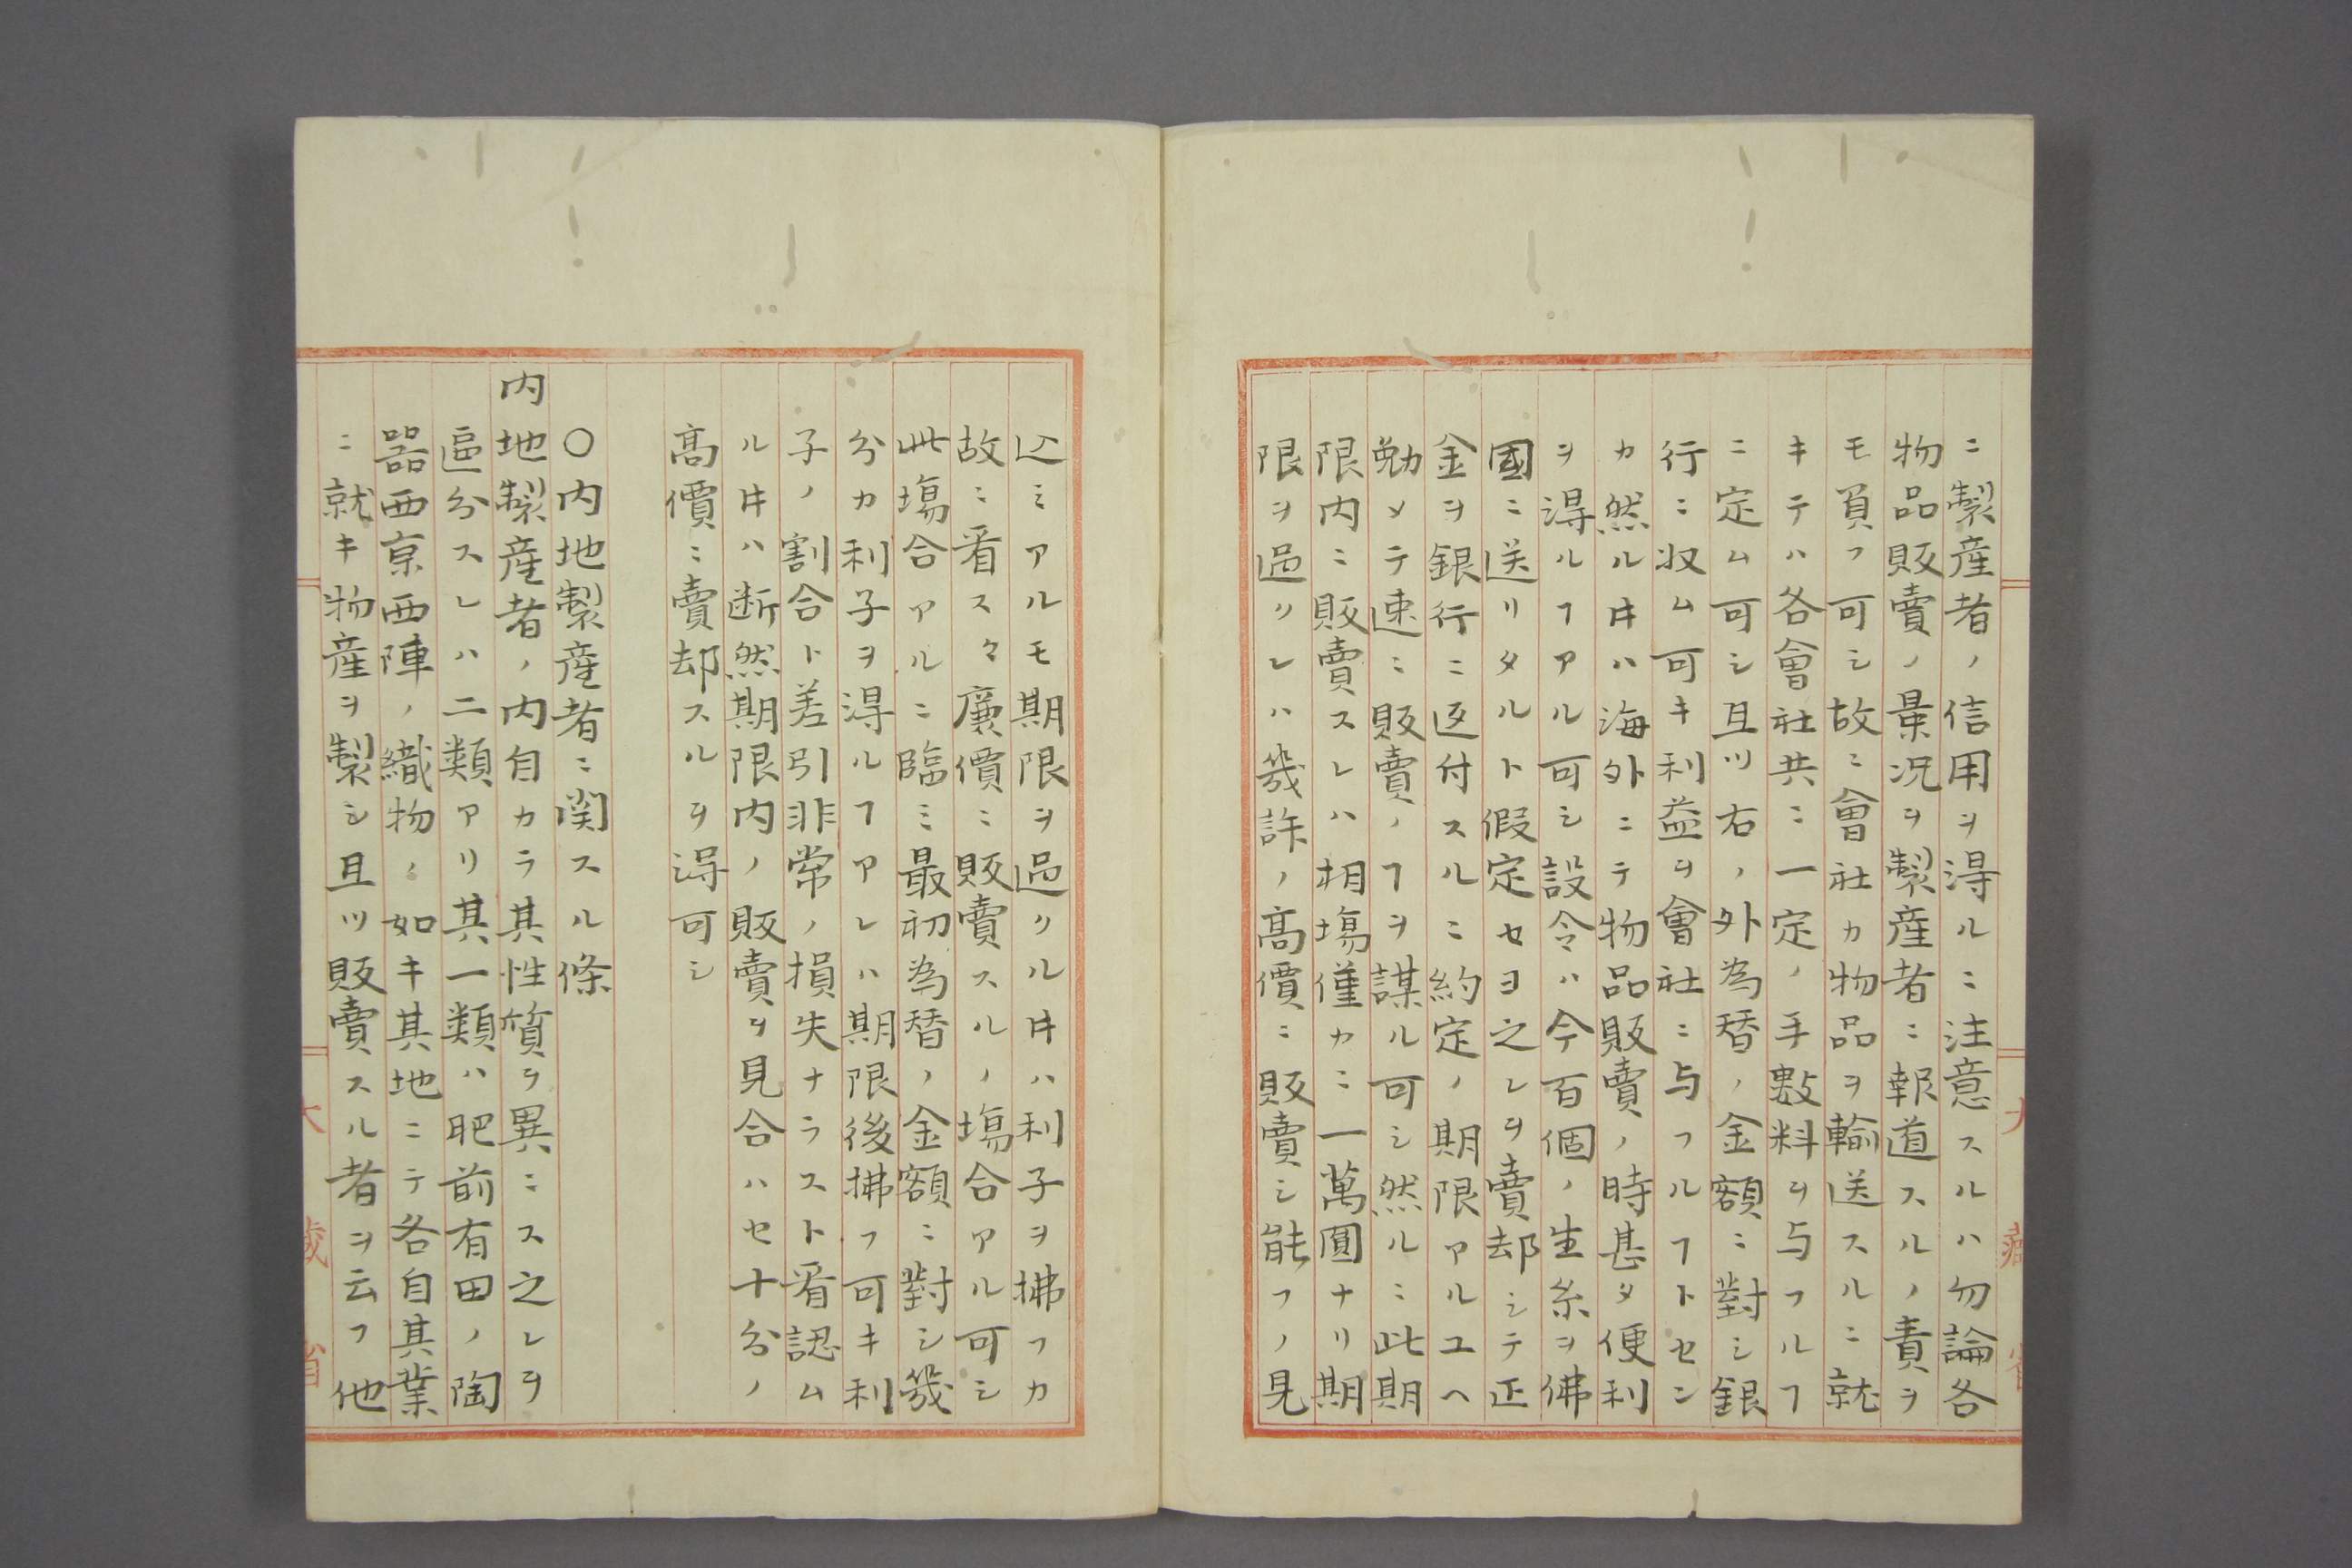 ニ製産者ノ信用ヲ淂ルニ注意スルハ勿論各
物品販賣ノ景况ヲ製産者ニ報道スルノ責ヲ
モ負フ可シ故ニ會社カ物品ヲ輸送スルニ就
キテハ各會社共ニ一定ノ手數料ヲ与フルヿ
ニ定ム可シ且ツ右ノ外為替ノ金額ニ對シ銀
行ニ収ム可キ利益ヲ會社ニ与フルヿトセン
カ然ル𪜈ハ海外ニテ物品販賣ノ時甚タ便利
ヲ淂ルヿアル可シ設令ハ今百個ノ生糸ヲ佛
國ニ送リタルト假定セヨ之レヲ賣却シテ正
金ヲ銀行ニ返付スルニ約定ノ期限アルユヘ
勉メテ速ニ販賣ノヿヲ謀ル可シ然ルニ此期
限内ニ販賣スレハ相塲僅カニ一萬圓ナリ期
限ヲ過リレハ幾許ノ髙價ニ販賣シ能フノ見
込ミアルモ期限ヲ過リル𪜈ハ利子ヲ拂フカ
故ニ看ス々廉價ニ販賣スルノ塲合アル可シ
此塲合アルニ臨ミ最初為替ノ金額ニ對シ幾
分カ利子ヲ淂ルヿアレハ期限後拂フ可キ利
子ノ割合ト差引非常ノ損失ナラスト看認ム
ル𪜈ハ断然期限内ノ販賣ヲ見合ハセ十分ノ
髙價ニ賣却スルヲ淂可シ
〇内地製産者ニ関スル條
内地製産者ノ内自カラ其性質ヲ異ニス之レヲ
區分スレハ二類アリ其一類ハ肥前有田ノ陶
器西京西陣ノ織物ノ如キ其地ニテ各自其業
ニ就キ物産ヲ製シ且ツ販賣スル者ヲ云フ他